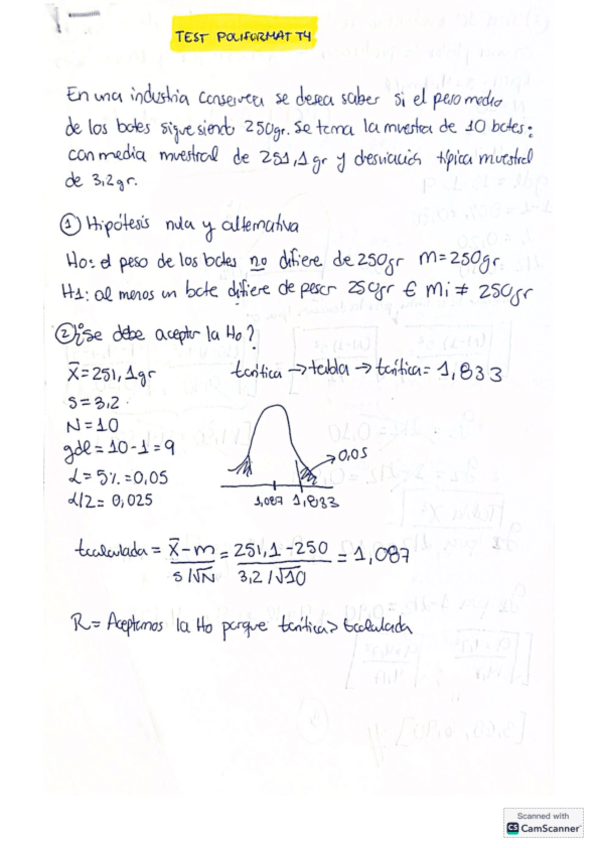 TEST POLIFORMAT T4
En una industria conservera se desea saber si el peso medio
de los botes sigue siendo 250gr. Se toma la muestra de 10 botes:
con media muestral de 251,1 gr y desviación típica muestral
de 3,2 gr.
① Hipótesis nula y alternativa
Ho: el peso de los botes no difiere de 250gr m=250gr
H1: al menos un bote difiere de pesar 250gr € mi ≠ 250gr
② ¿Se debe aceptar la Ho?
X̄=251,1gr tcrítica → tabla → tcrítica = 1,833
S=3,2
N=10
gdl = 10-1 = 9
α = 5% = 0,05
α/2 = 0,025
0,05
1,087 1,833
tcalculada = X̄-m / s/√N = 251,1-250 / 3,2/√10 = 1,087
R= Aceptamos la Ho porque tcrítica > tcalculada
Scanned with
CS CamScanner